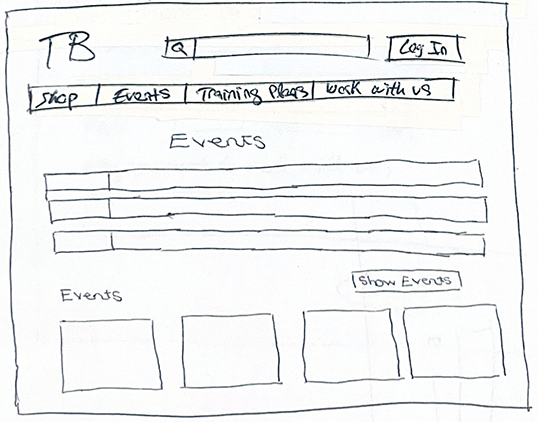 TB
Log In
Shop Events Training Plans Work with us
Events
Show Events
Events